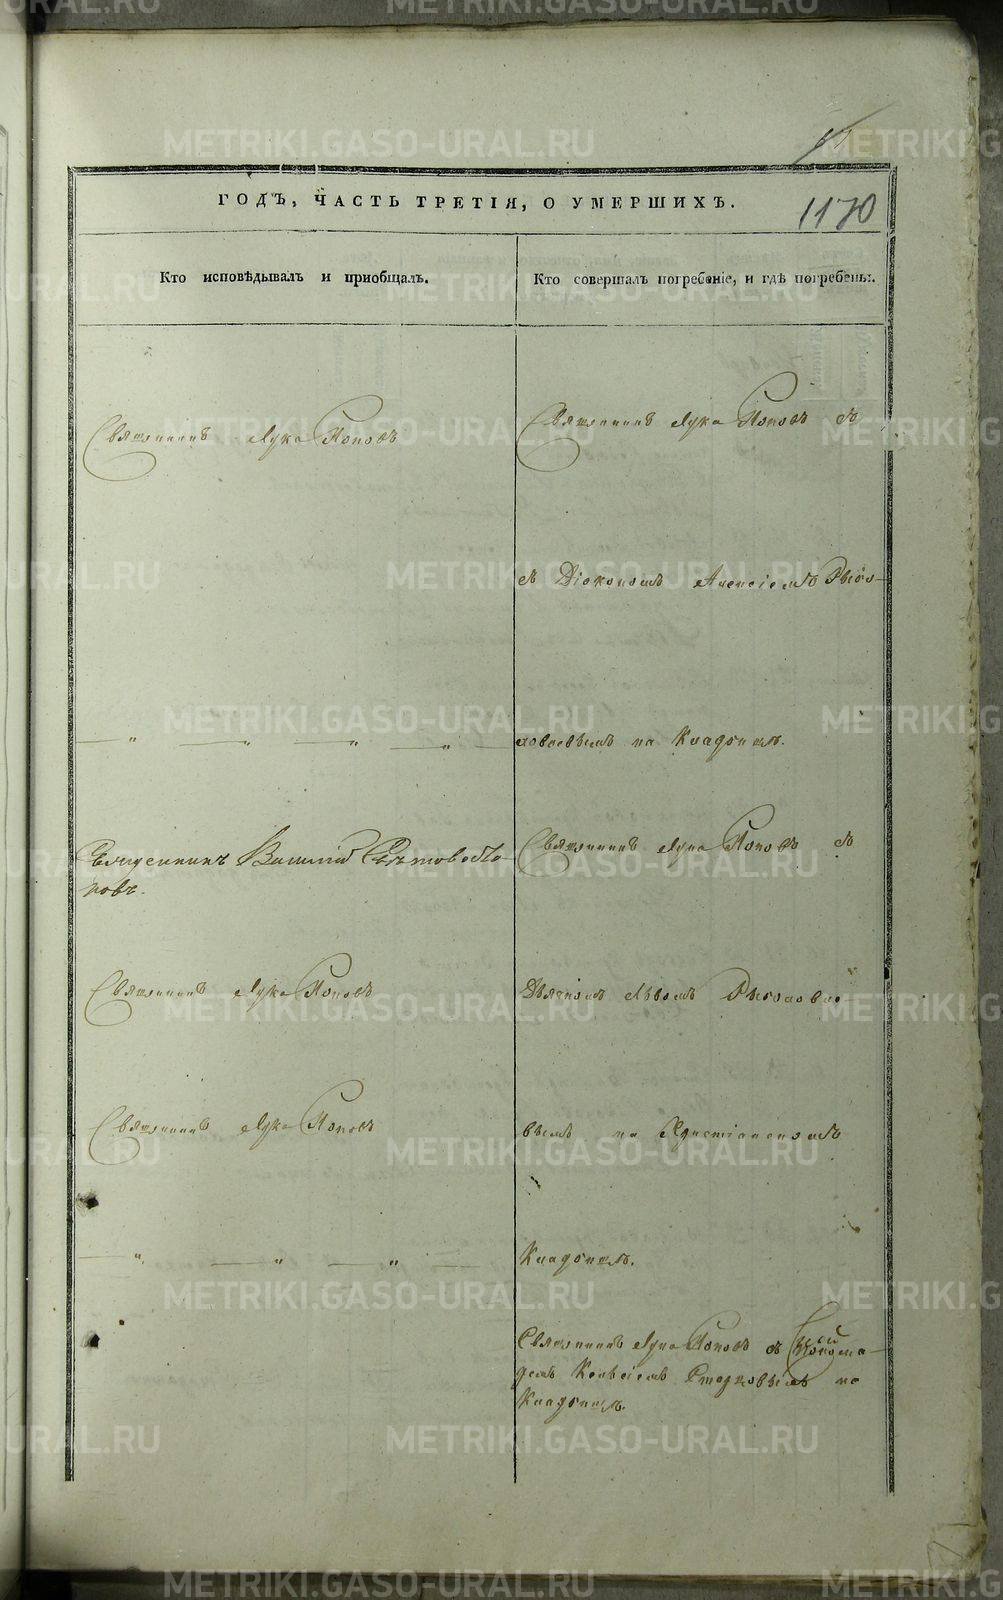 1170
ГОДЪ, ЧАСТЬ ТРЕТІЯ, О УМЕРШИХЪ.
Кто исповѣдывалъ и приобщалъ.
Кто совершалъ погребеніе, и гдѣ погребены.
Священникъ Лука Поповъ
Священникъ Лука Поповъ съ
съ Діакономъ Алексіемъ
на Кладбищѣ.
Священникъ Василій
новъ.
Священникъ Лука Поповъ съ
Священникъ Лука Поповъ
Дьячкомъ Львомъ
Священникъ Лука Поповъ
вымъ на Христіанскомъ
Кладбищѣ.
Священникъ Лука Поповъ съ Понома-
ремъ на
Кладбищѣ.
METRIKI.GASO-URAL.RU